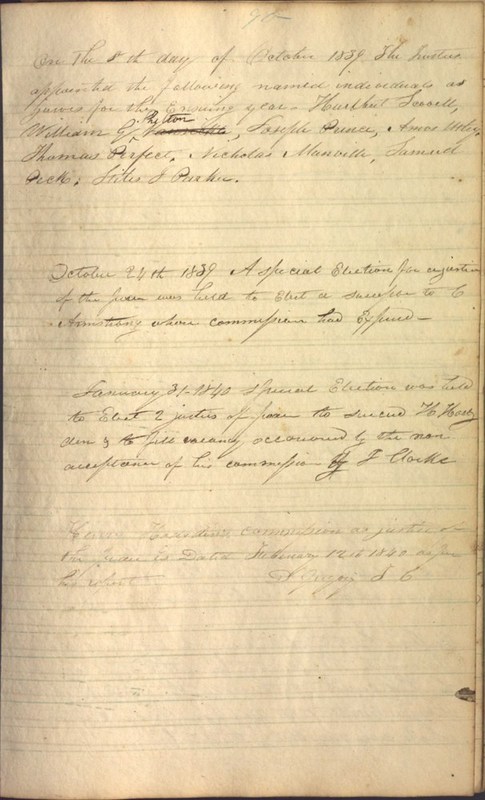 On the 8th day of October 1839 The Trustees
appointed the following named individuals as
jurors for the Ensuing year. Hurlbut
William G. Phelton, Joseph Prince, Amos Utley,
Thomas Perfect, Nicholas Manvill, Samuel
Peck, Stiles J Parker.
October 24th 1839 A special Election for a justice
of the peace was held to Elect a successor to C
Armstrong whose commission had Expired—
January 31-1840 Special Election was held
to Elect 2 justices of peace to succeed H. Hard
den & to fill vacancy occasioned by the non
acceptance of his commission by T Clarke
commission as justice of
the peace is Dated February 12th 1840 as per
his